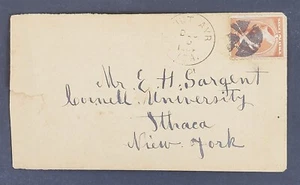 AYR
Mr. E. H. Sargent
Cornell University
Ithaca
New York